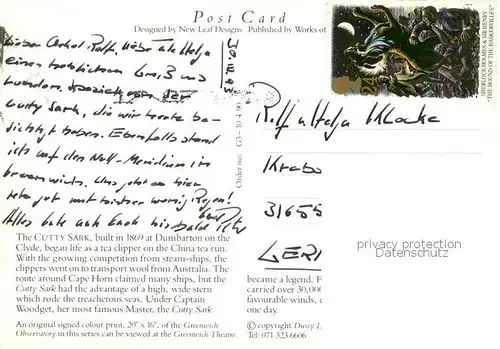 Post Card
Designed by New Leaf Designs Published by Works of
SHERLOCK HOLMES & SIR HENRY
"THE HOUND OF THE BASKERVILLES"
Lieber Onkel Rolf, liebe Tante Helja
einen herzlichen Gruß aus
London
Cutty Sark, die wir heute be-
sichtigt haben. Ebenfalls stand
ich auf dem Null-Meridian in
Greenwich.
Regen!
Alles Gute und Euch bis bald
Order no: G3-10-4-90
Rolf u Helja Klocke
31655
GER
privacy protection
Datenschutz
The CUTTY SARK, built in 1869 at Dumbarton on the
Clyde, began life as a tea clipper on the China tea run.
With the growing competition from steam-ships, the
clippers went on to transport wool from Australia. The
route around Cape Horn claimed many ships, but the
Cutty Sark had the advantage of a high, wide stern
which rode the treacherous seas. Under Captain
Woodget, her most famous Master, the Cutty Sark
became a legend. F
carried over 30,000
favourable winds,
one day.
An original signed colour print, 20" x 16", of the Greenwich
Observatory in this series can be viewed at the Greenwich Theatre.
© copyright Dusty L
Tel: 071 323 6606